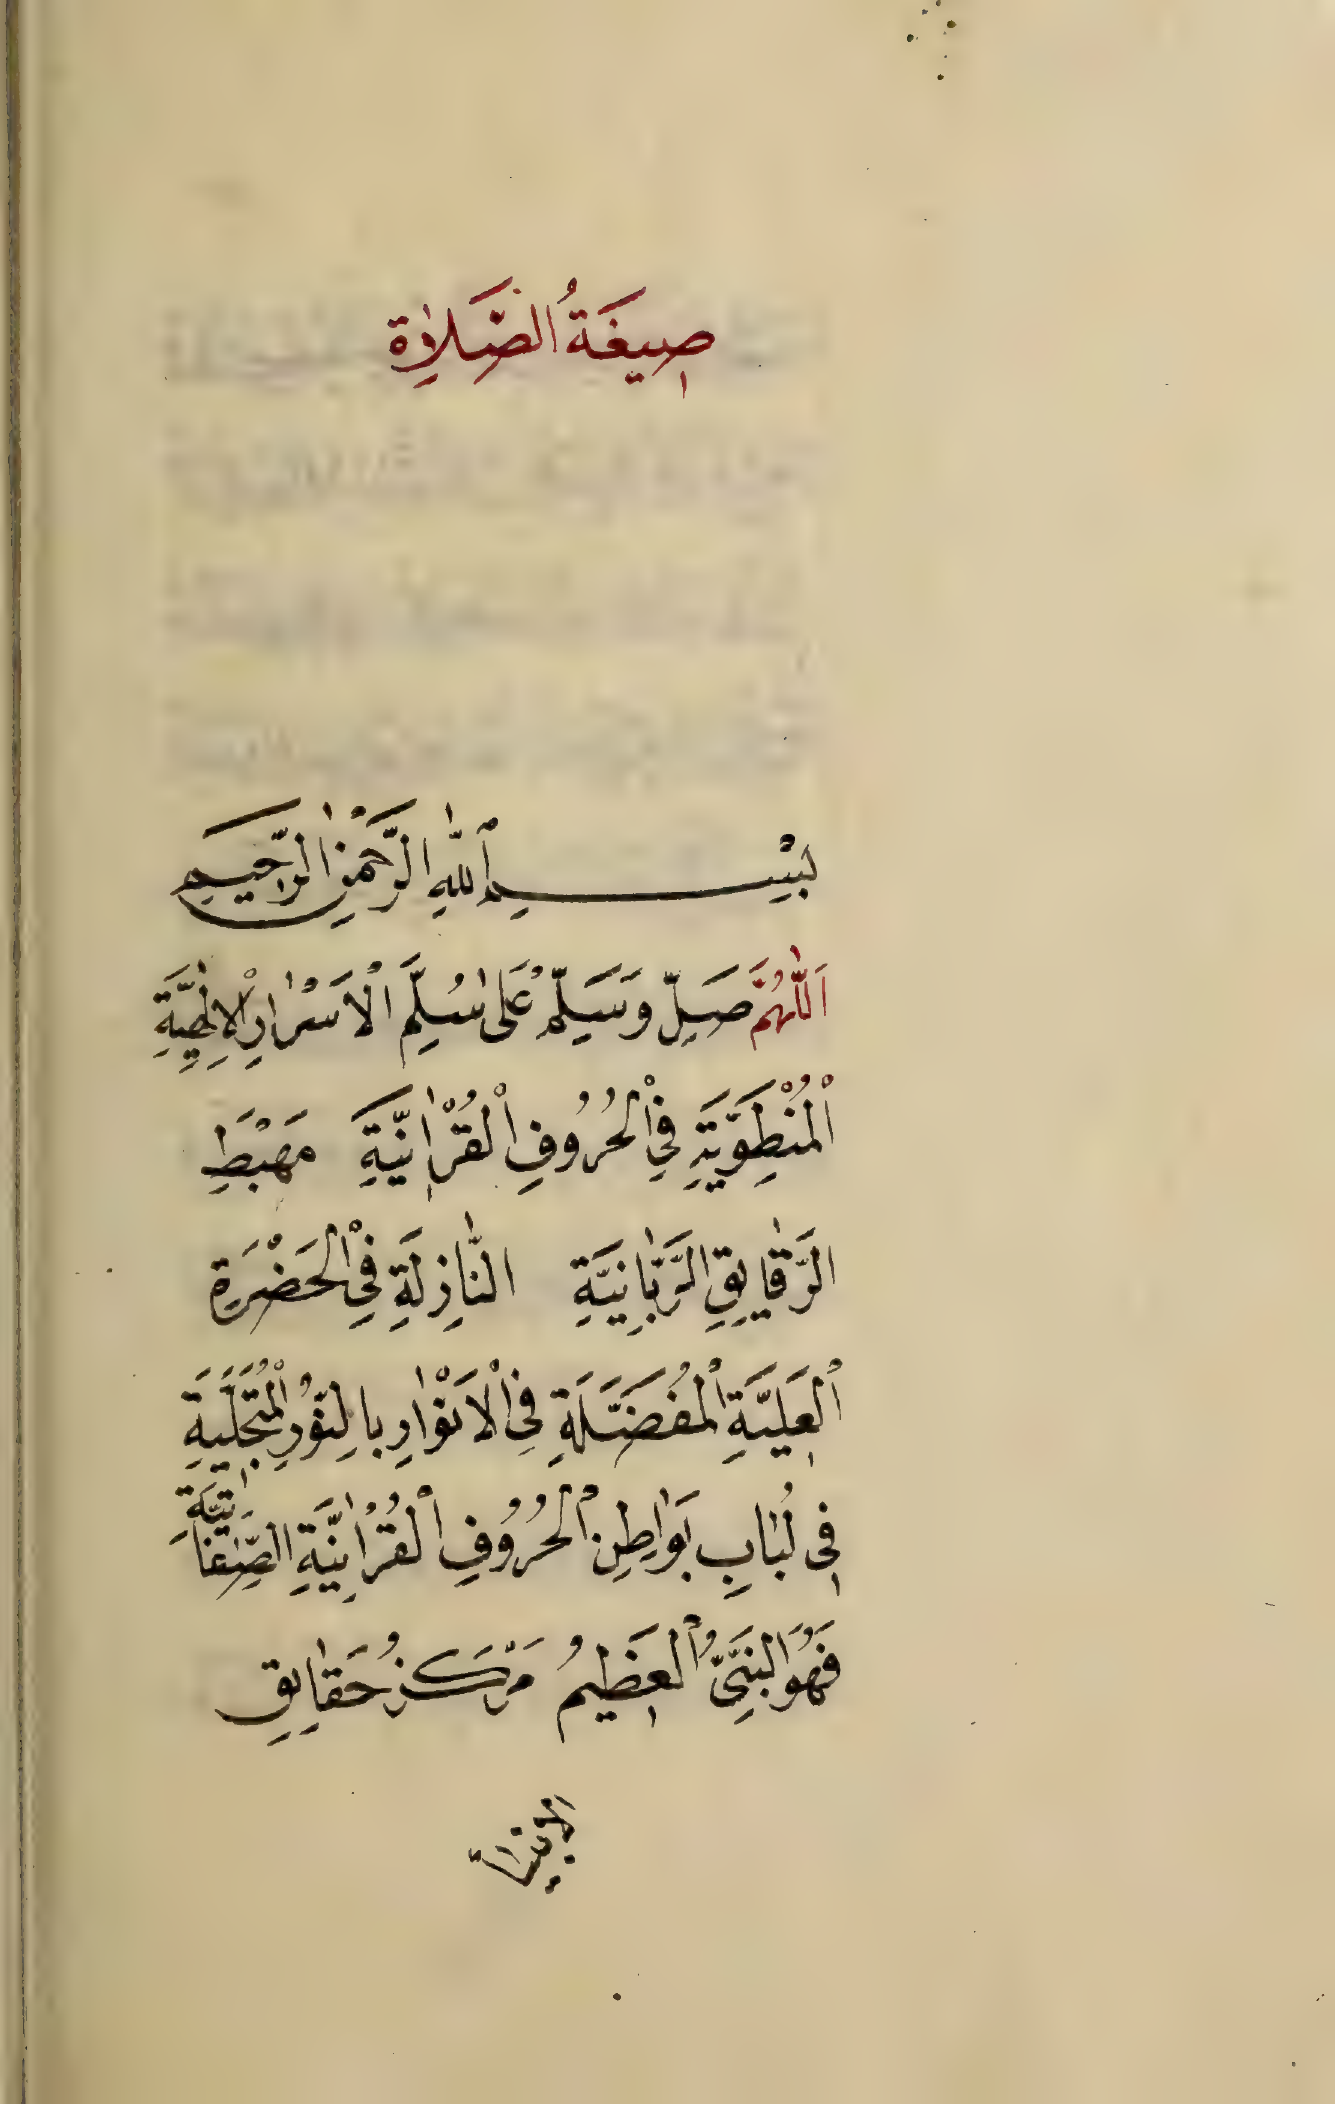 صِيغَةُ الصَّلَاةِ
بِسْمِ اللّٰهِ الرَّحْمٰنِ الرَّحِيمِ
اَللّٰهُمَّ صَلِّ وَسَلِّمْ عَلٰى سُلَّمِ الْاَسْرَارِ الْاِلٰهِيَّةِ
الْمُنْطَوِيَّةِ فِي الْحُرُوفِ الْقُرْاٰنِيَّةِ مَهْبَطِ
الرَّقَايِقِ الرَّبَّانِيَّةِ النَّازِلَةِ فِي الْحَضْرَةِ
الْعَلِيَّةِ الْمُفَضَّلَةِ فِي الْاَنْوَارِ بِالنُّورِ الْمُتَجَلِّيَةِ
فِي لُبَابِ بَوَاطِنِ الْحُرُوفِ الْقُرْاٰنِيَّةِ الصِّفَاتِيَّةِ
فَهُوَ النَّبِيُّ الْعَظِيمُ مَرْكَزُ حَقَايِقِ
الْاَنْبِيَاءِ